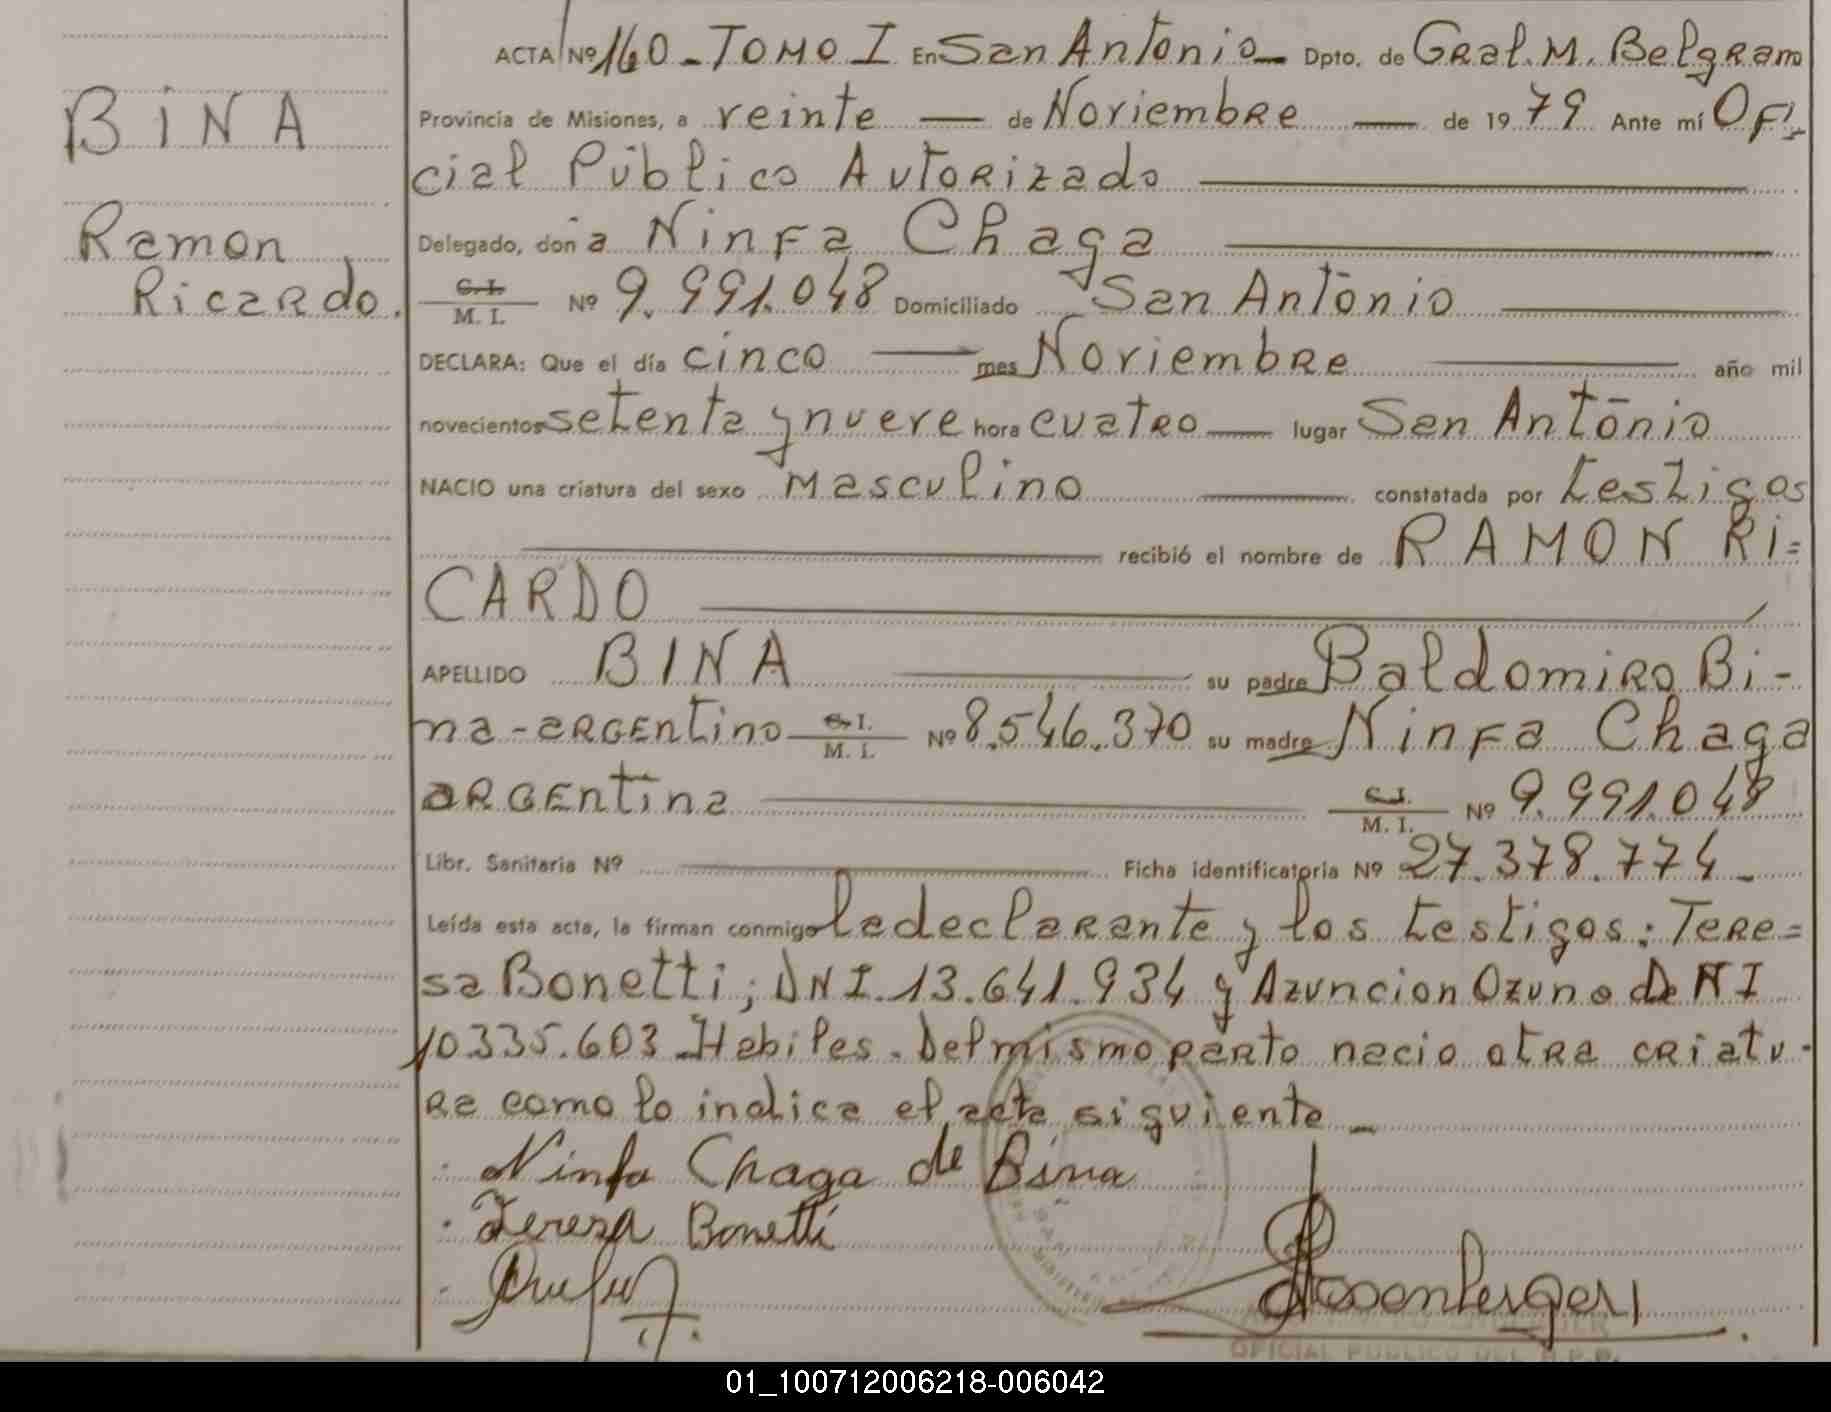 BINA
Ramon
Ricardo.
ACTA Nº 160 - TOMO I En San Antonio - Dpto. de Gral. M. Belgrano
Provincia de Misiones, a veinte — de Noviembre — de 19 79 Ante mí Ofi-
cial Público Autorizado
Delegado, don a Ninfa Chaga
C. I. / M. I. Nº 9.991.048 Domiciliado San Antonio
DECLARA: Que el día cinco — mes Noviembre — año mil
novecientos setenta y nueve hora cuatro — lugar San Antonio
NACIO una criatura del sexo Masculino — constatada por testigos
— recibió el nombre de RAMON RI=
CARDO
APELLIDO BINA — su padre Baldomiro Bi-
na - argentino C. I. / M. I. Nº 8.546.370 su madre Ninfa Chaga
argentina — C. I. / M. I. Nº 9.991.048
Libr. Sanitaria Nº — Ficha identificatoria Nº 27.378.774 -
Leída esta acta, la firman conmigo la declarante y los testigos: Tere=
sa Bonetti; DNI. 13.641.934 y Azuncion Ozuna DNI
10.335.603 Habiles. Del mismo parto nacio otra criatu-
ra como lo indica el acta siguiente -
Ninfa Chaga de Bina
Teresa Bonetti
OFICIAL PUBLICO DEL R.P.P.
01_100712006218-006042